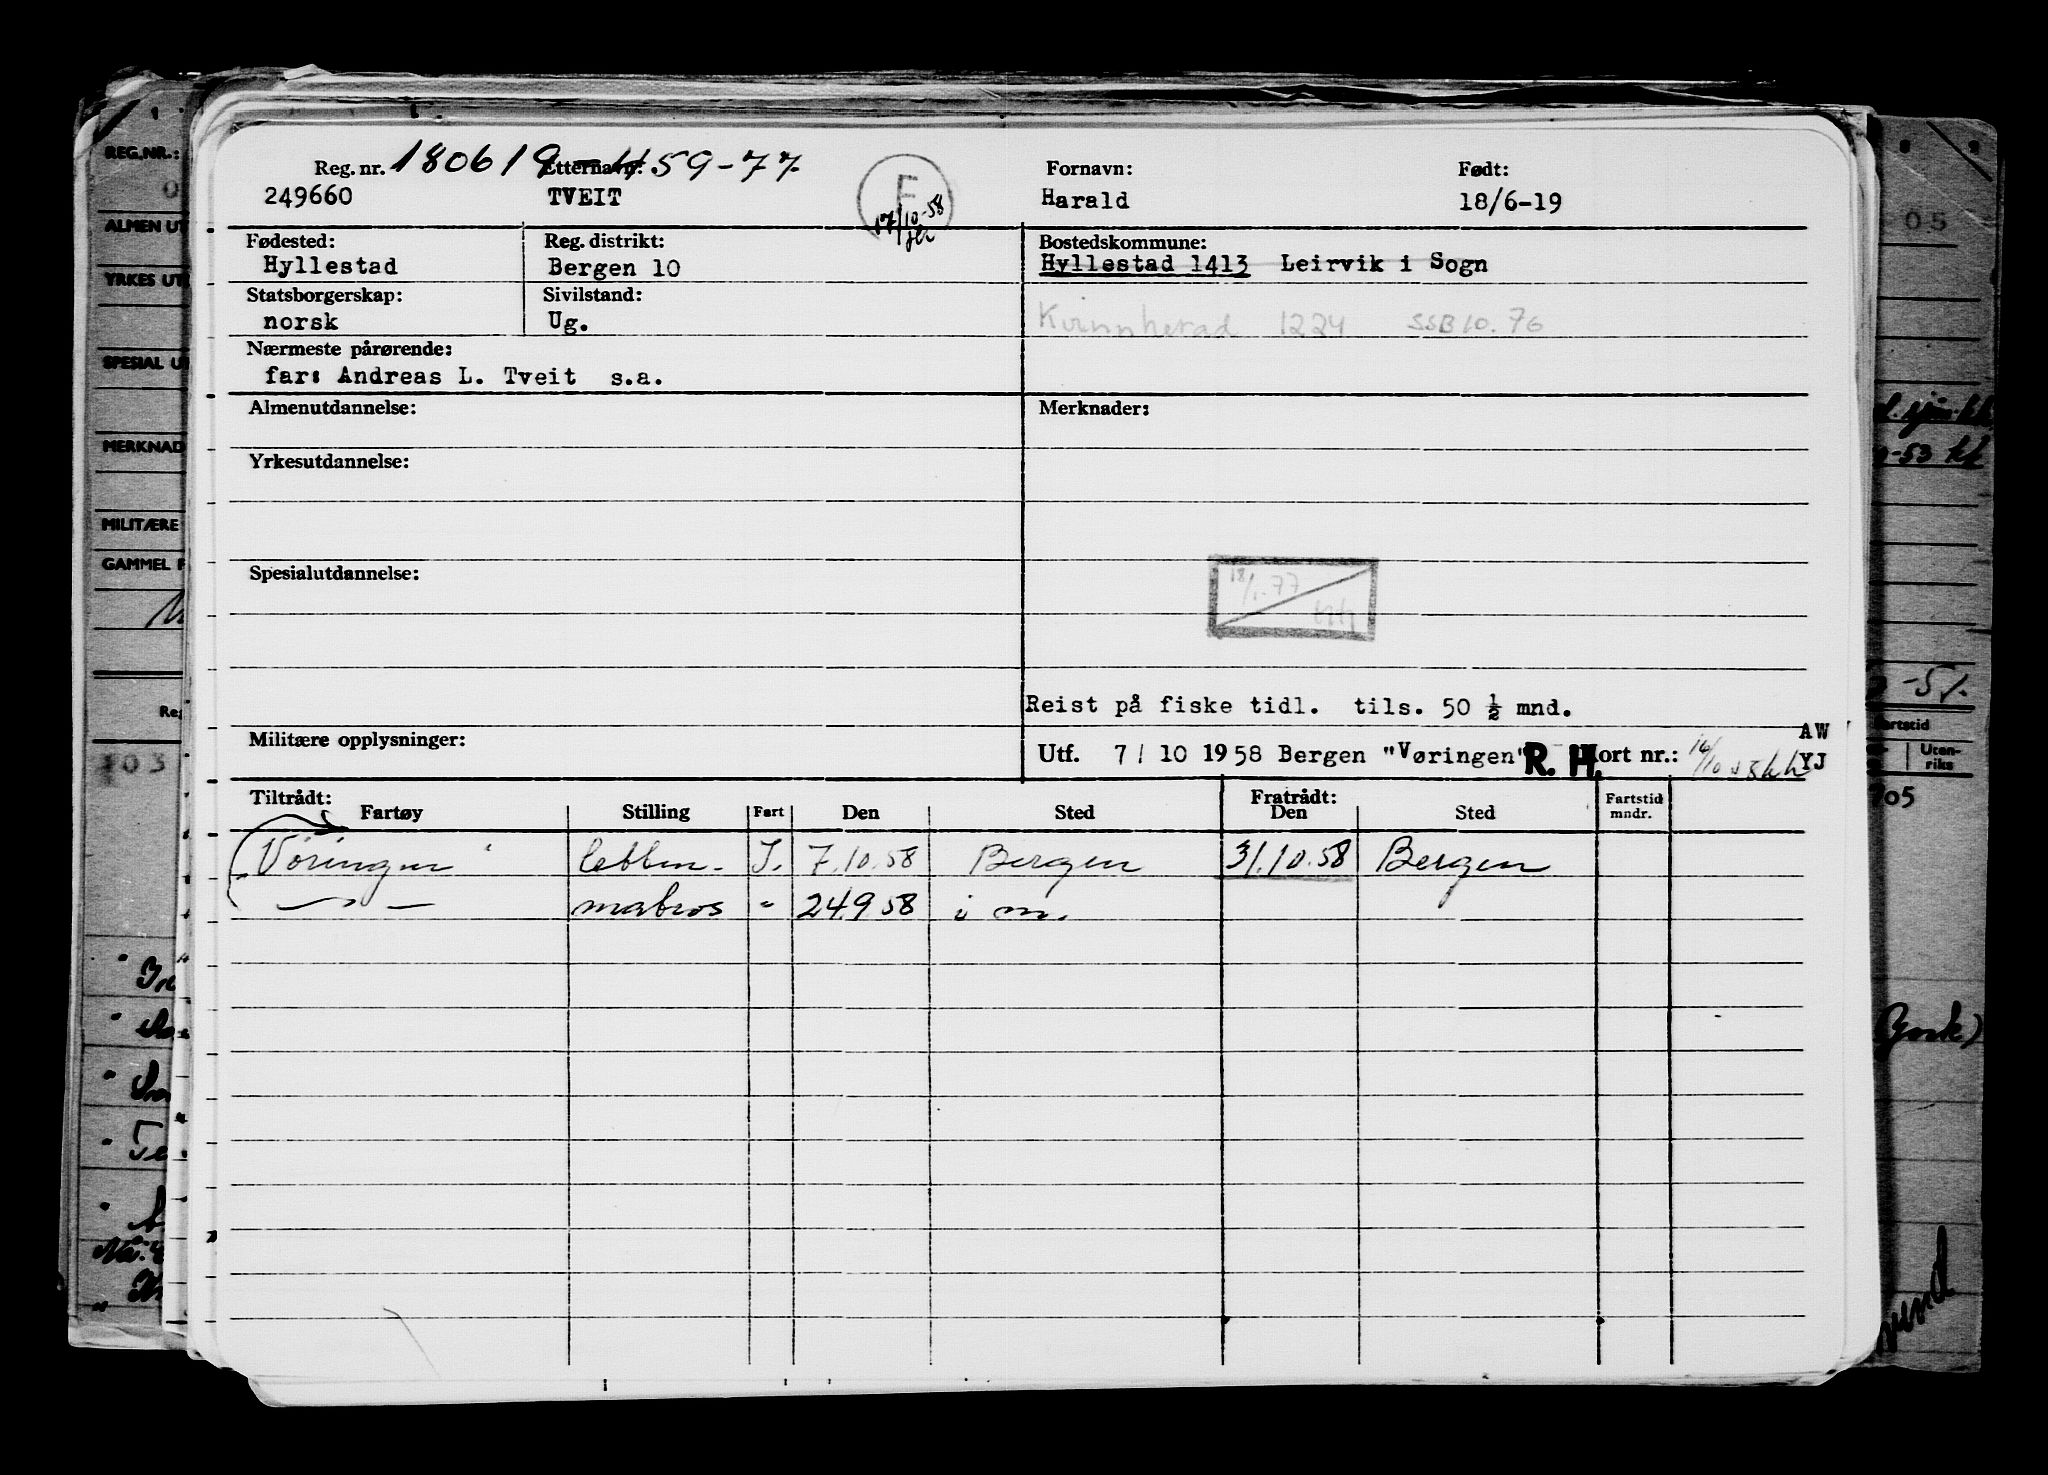 Reg. nr. 180619 - 459-77. Etternavn: Fornavn: Født:
249660 TVEIT Harald 18/6-19
F
17/10-58
Fødested: Reg. distrikt: Bostedskommune:
Hyllestad Bergen 10 Hyllestad 1413 Leirvik i Sogn
Statsborgerskap: Sivilstand:
norsk Ug. Kvinnherad 1224 SSB 10.76
Nærmeste pårørende:
far: Andreas L. Tveit s.a.
Almenutdannelse: Merknader:
Yrkesutdannelse:
Spesialutdannelse:
18/1-77
Reist på fiske tidl. tils. 50 ½ mnd.
AW
Militære opplysninger: Utf. 7/ 10 1958 Bergen "Vøringen" R. H. Kort nr.: YJ
Tiltrådt: Fratrådt:
Fartøy Stilling Fart Den Sted Den Sted Fartstid mndr.
"Vøringen" lettm. I. 7.10.58 Bergen 31.10.58 Bergen
— " — matros " 24.9 58 i m.
REG.NR.:
0
ALMEN UT
YRKES UT
SPESIAL U
MERKNAD
MILITÆRE
GAMMEL F
Re
103
05
-53 kk
-51.
artstid
Uten-
riks
905